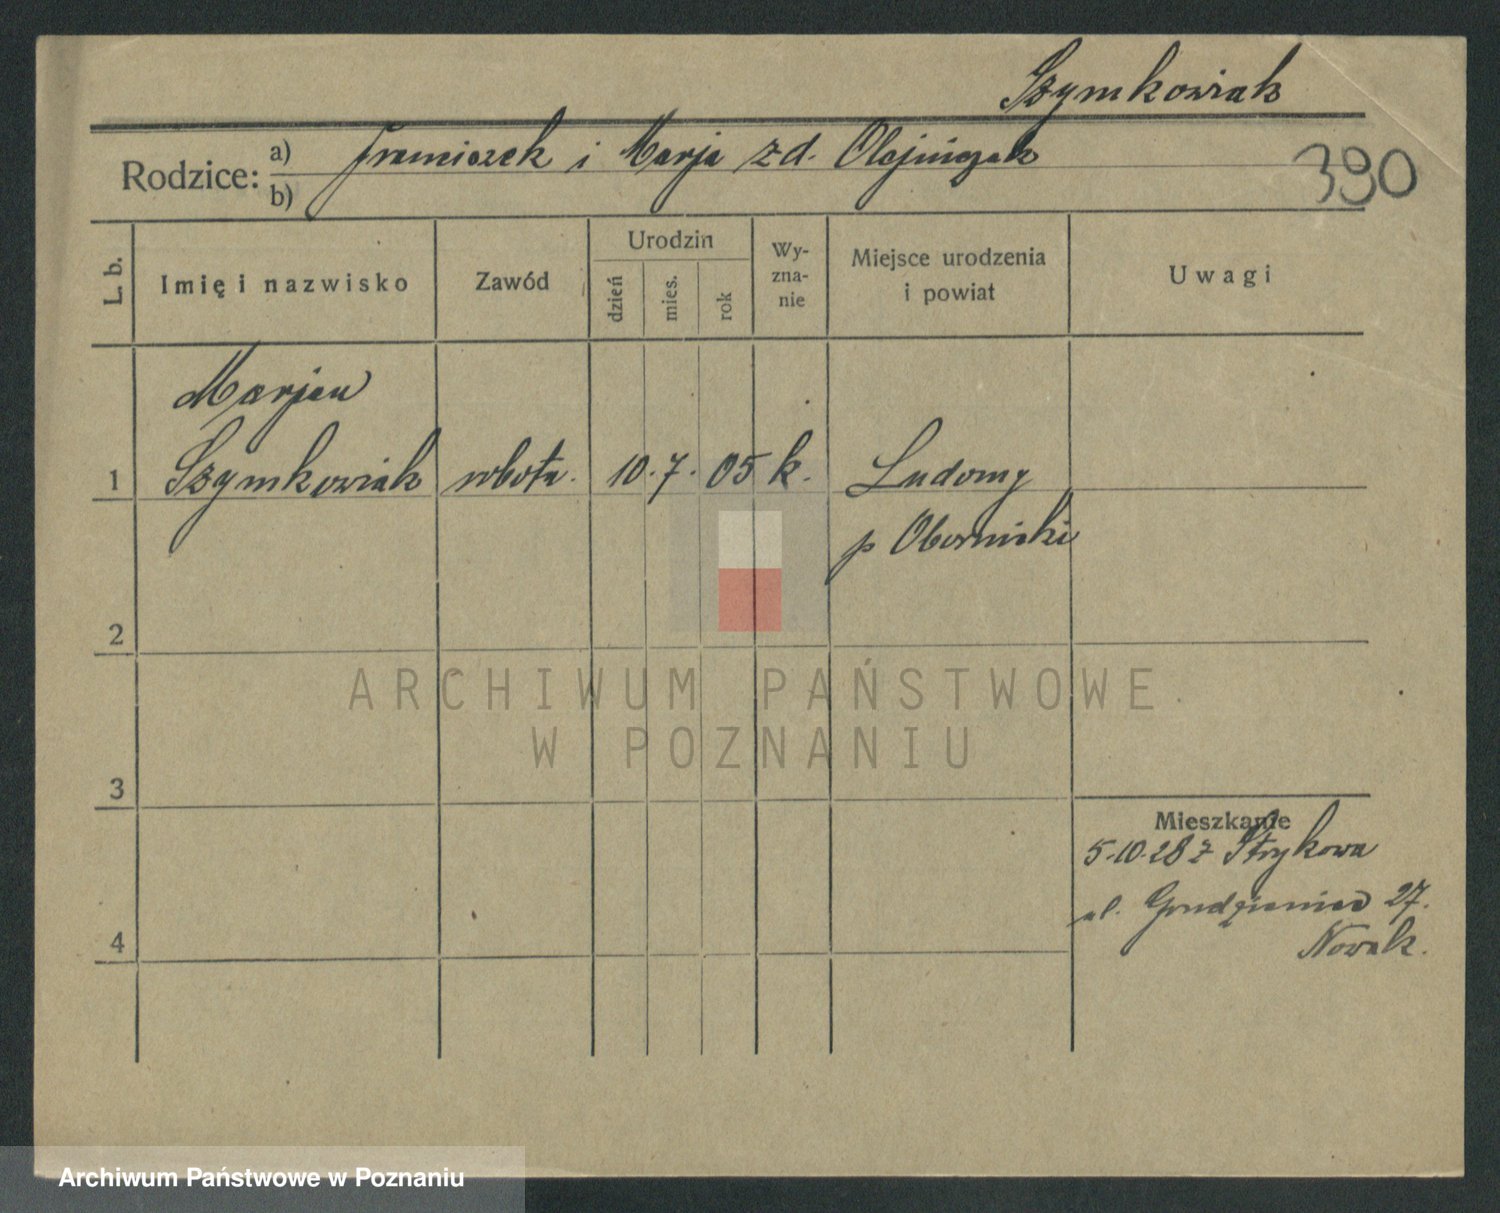 Szymkowiak
Rodzice: a) Franciszek i Marja z d. Olejniczak
b)
390
L. b.
Imię i nazwisko
Zawód
Urodzin
dzień
mies.
rok
Wy-
zna-
nie
Miejsce urodzenia
i powiat
Uwagi
Marjan
1 Szymkowiak robotn. 10. 7. 05 k. Ludomy
p Obornicki
2
3
4
Mieszkanie
5.10.28 z Strykowa
ul. Grudzieniec 27.
Nowak.
ARCHIWUM PAŃSTWOWE
W POZNANIU
Archiwum Państwowe w Poznaniu